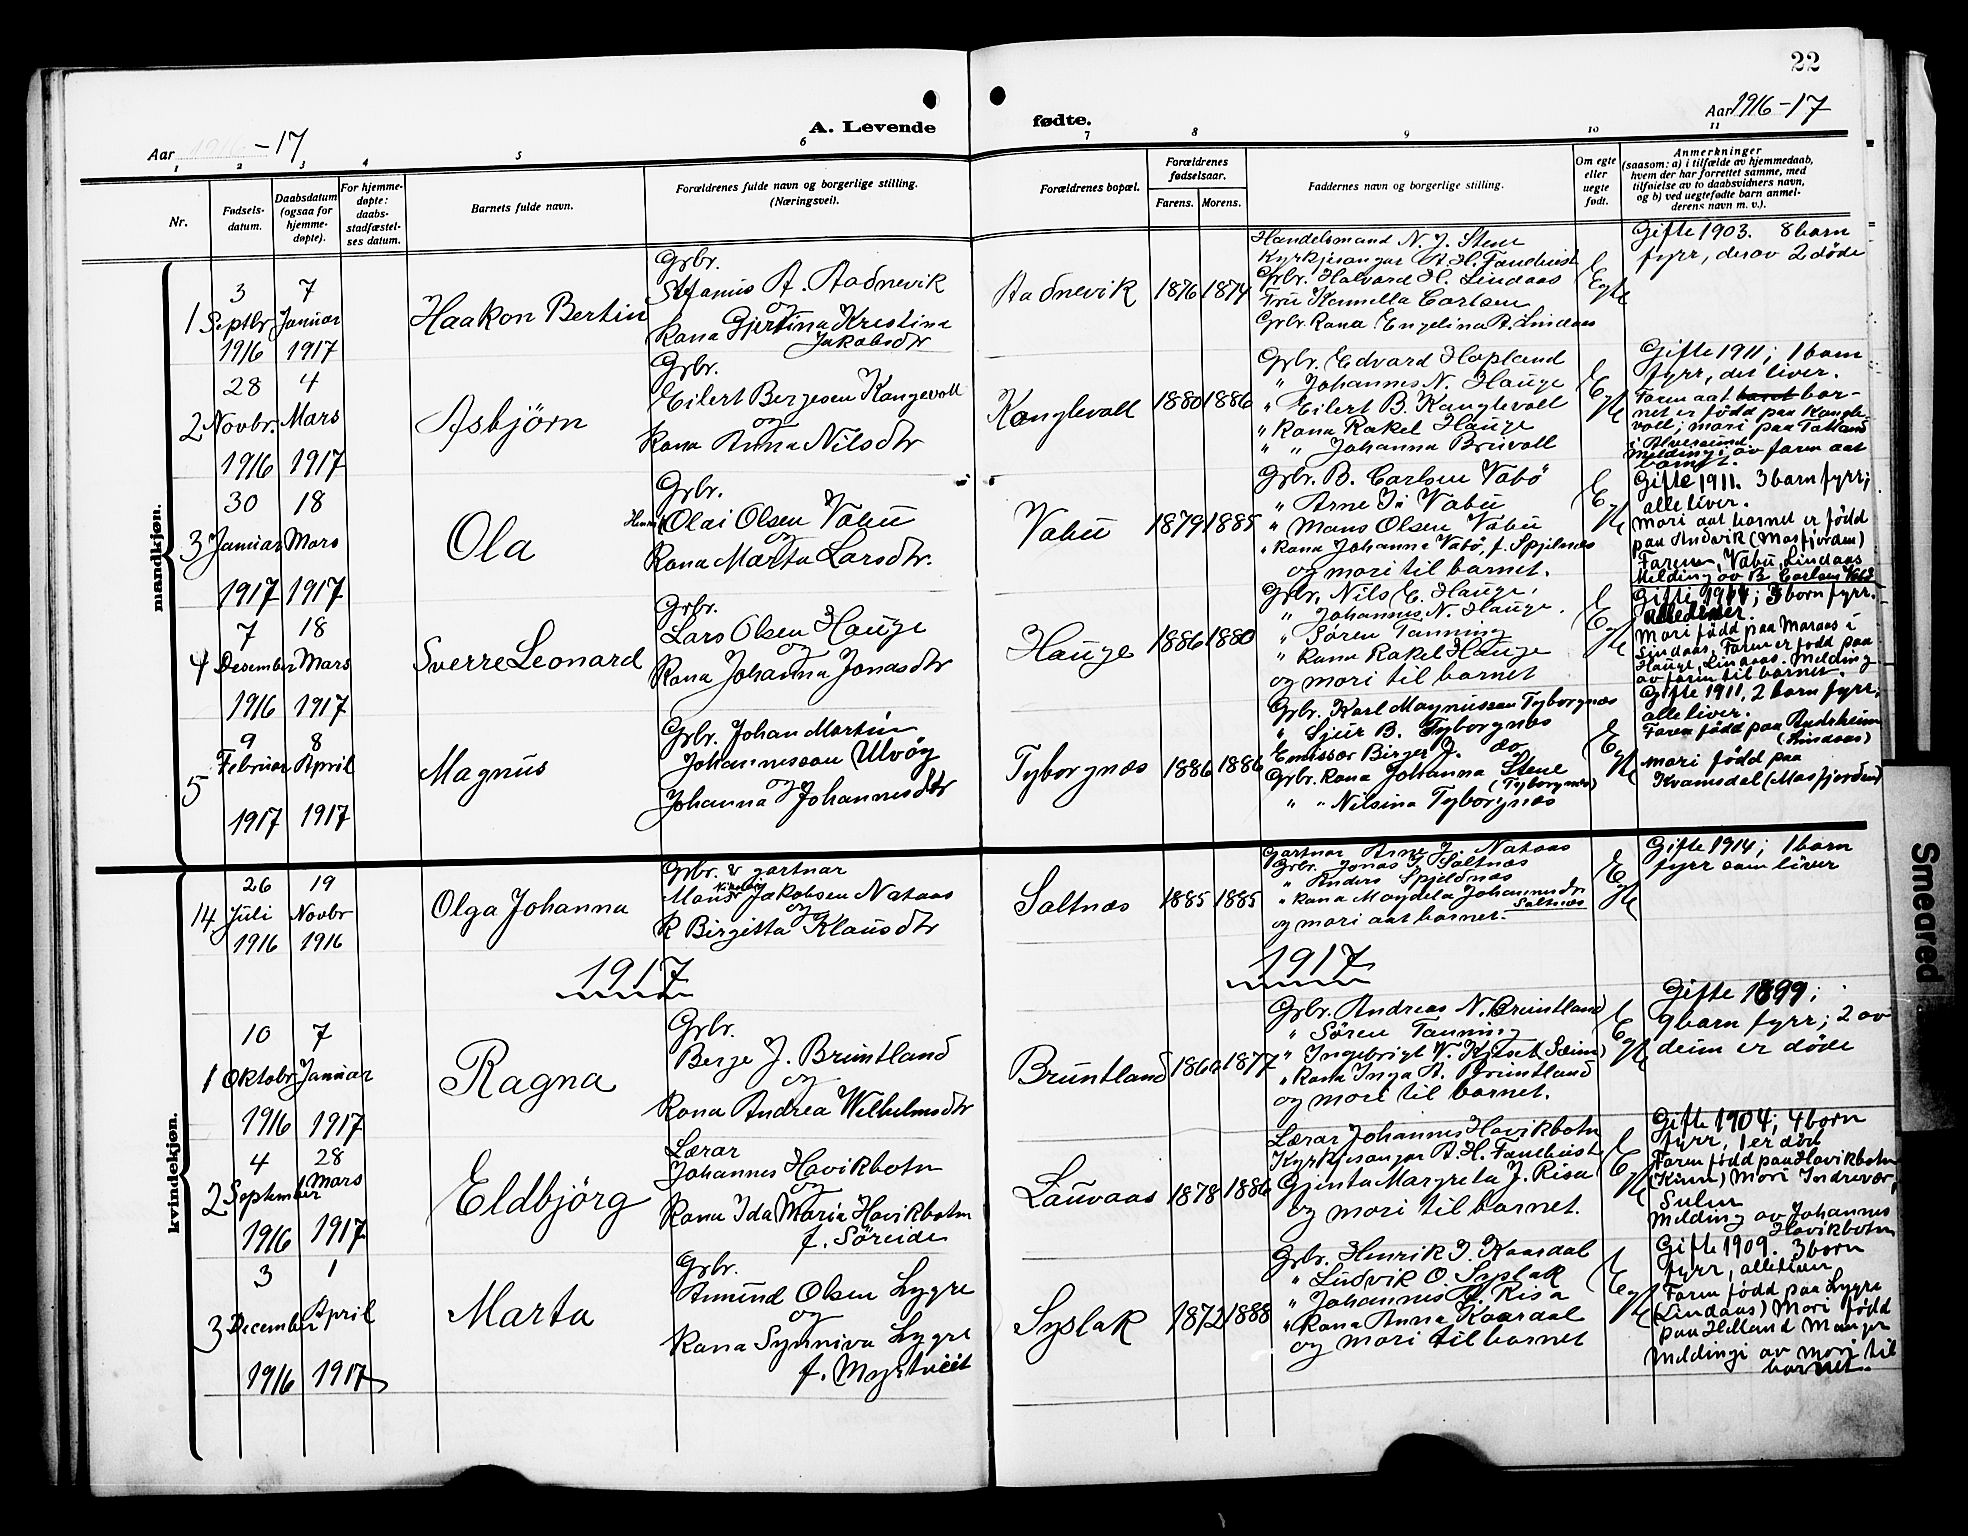 22
Aar 1916-17
A. Levende
fødte.
Aar 1916-17
1 2 3 4 5 6 7 8 9 10 11
Nr.
Fødsels-
datum.
Daabsdatum
(ogsaa for
hjemme-
døpte).
For hjemme-
døpte:
daabs-
stadfæstel-
ses datum.
Barnets fulde navn.
Forældrenes fulde navn og borgerlige stilling.
(Næringsvei).
Forældrenes bopæl.
Forældrenes
fødselsaar.
Farens. Morens.
Faddernes navn og borgerlige stilling.
Om egte
eller
uegte
født.
Anmerkninger
(saasom: a) i tilfælde av hjemmedaab,
hvem der har forrettet samme, med
tilføielse av to daabsvidners navn,
og b) ved uegtefødte barn anmel-
derens navn m. v.).
mandkjøn.
1
3
Septbr
1916
7
Januar
1917
Haakon Bertin
Grbr.
Stefanus A. Aadnevik
og
Kona Gjertina Kristine
Jakobsdtr
Aadnevik
1876 1874
Handelsmand N. J. Stene
Kyrkjesangar A. H. Fandkvist
Grbr. Halvard H. Lindaas
Fru Carlsen
Grbr. Kona Engelina A. Lindaas
Egte
Gifte 1903. 8 barn
fyrr, derav 2 døde
2
28
Novbr.
1916
4
Mars
1917
Asbjörn
Grbr.
Eilert Bergesen Kanglevoll
og
Kona Anna Nilsdtr
Kanglevoll
1880 1886
Grbr. Edvard Hopland
" Johannes N. Hauge
" Eilert B. Kanglevoll
" Kona Rakel Hauge
" " Johanna Bruvoll
Egte
Gifte 1911; 1 barn
fyrr, det liver.
Faren aat barnet bar-
net er född paa Kangle-
voll; mori paa
i Alversund
Melding av faren aat
barnet.
3
30
Januar
1917
18
Mars
1917
Ola
Grbr.
Olai Olsen Vabu
og
Kona Marta Larsdtr.
Vabu
1879 1885
Grbr. B. Carlsen Vabö
" Arne J. Vabu
" Mons Olsen Vabu
" Kona Johanna Vabö, f. Spjelnæs
og mori til barnet.
Egte
Gifte 1911. 3 barn fyrr;
alle liver.
Mori aat barnet er född
paa Andvik (Masfjorden)
Faren, Vabu, Lindaas
Melding av B. Carlsen Vabö
4
7
Desember
1916
18
Mars
1917
Sverre Leonard
Grbr.
Lars Olsen Hauge
og
Kona Johanna Jonasdtr
Hauge
1886 1880
Grbr. Nils E. Hauge,
" Johannes N. Hauge.
" Søren Tanning
" Kona Rakel Hauge
og mori til barnet
Egte
Gifte 1914; 3 born fyrr.
alle liver.
Mori född paa Maraas i
Lindaas, Faren er född paa
Hauge, Lindaas. Melding
av faren til barnet.
5
9
Februar
1917
8
April
1917
Magnus
Grbr. Johan Martin
Johannessen Ulvöy
og
Johanna Johannesdtr
Tyborgnæs
1886 1886
Grbr. Karl Magnussen Tyborgnæs
" Sjur B. Tyborgnæs
Emissær Birger J. do
Grbr. Kona Johanna Stene
(Tyborgnæs)
" " Nilsina Tyborgnæs
Egte
Gifte 1911, 2 barn fyrr,
alle liver.
Faren född paa Andrheim
(Lindaas)
mori född paa
Kvamsdal (Masfjorden)
kvindekjøn.
14
26
Juli
1916
19
Novbr
1916
Olga Johanna
Grbr. & gartnar
Mons Nikolay Jakobsen Nataas
og
K Birgitta Klausdtr
Saltnæs
1885 1885
Gartnar Arne J. Nataas
Grbr. Jonas J. Saltnæs
" Anders Spjeldnæs
" Kona Magdela Johannesdr
Saltnæs
og mori aat barnet.
Egte
Gifte 1914; 1 barn
fyrr som liver
1917
1917
1
10
Oktobr
1916
7
Januar
1917
Ragna
Grbr.
Berge J. Bruntland
og
Kona Andrea Wilhelmsdtr
Bruntland
1877
Grbr. Andreas N. Bruntland
" Søren Tanning
" Ingebrigt V. (Sæim)
" Kona Inga A. Bruntland
og mori til barnet.
Egte
Gifte 1899;
9 barn fyrr; 2 av
deim er døde
2
4
September
1916
28
Mars
1917
Eldbjörg
Lærar
Johannes Hovikbotn
og
Kona Ida Maria Hovikbotn
f. Söreide
Lauvaas
1878 1886
Lærar Johannes Hovikbotn
Kyrkjesangar A. H. Fandkvist
Gjenta Margreta J. Risa
og mori til barnet.
Egte
Gifte 1904; 4 born
fyrr, 1 er död
Faren född paa Hovikbotn
(Kinn) Mori Indrevær,
Sulen
Melding av Johannes
Hovikbotn
3
3
December
1916
1
April
1917
Marta
Grbr.
Amund Olsen Lygre
og
Kona Synniva Lygre
f. Myrtveit
Syslak
1872 1888
Grbr. Henrik J. Kaardal
" Ludvik O. Syslak
" Johannes A. Risa
" Kona Anna Kaardal
og mori til barnet
Egte
Gifte 1909. 3 born
fyrr, alle liver
Faren född paa Lygre
(Lindaas) Mori född
paa Helland Manger
Meldingi av mori til
barnet.
Smeared